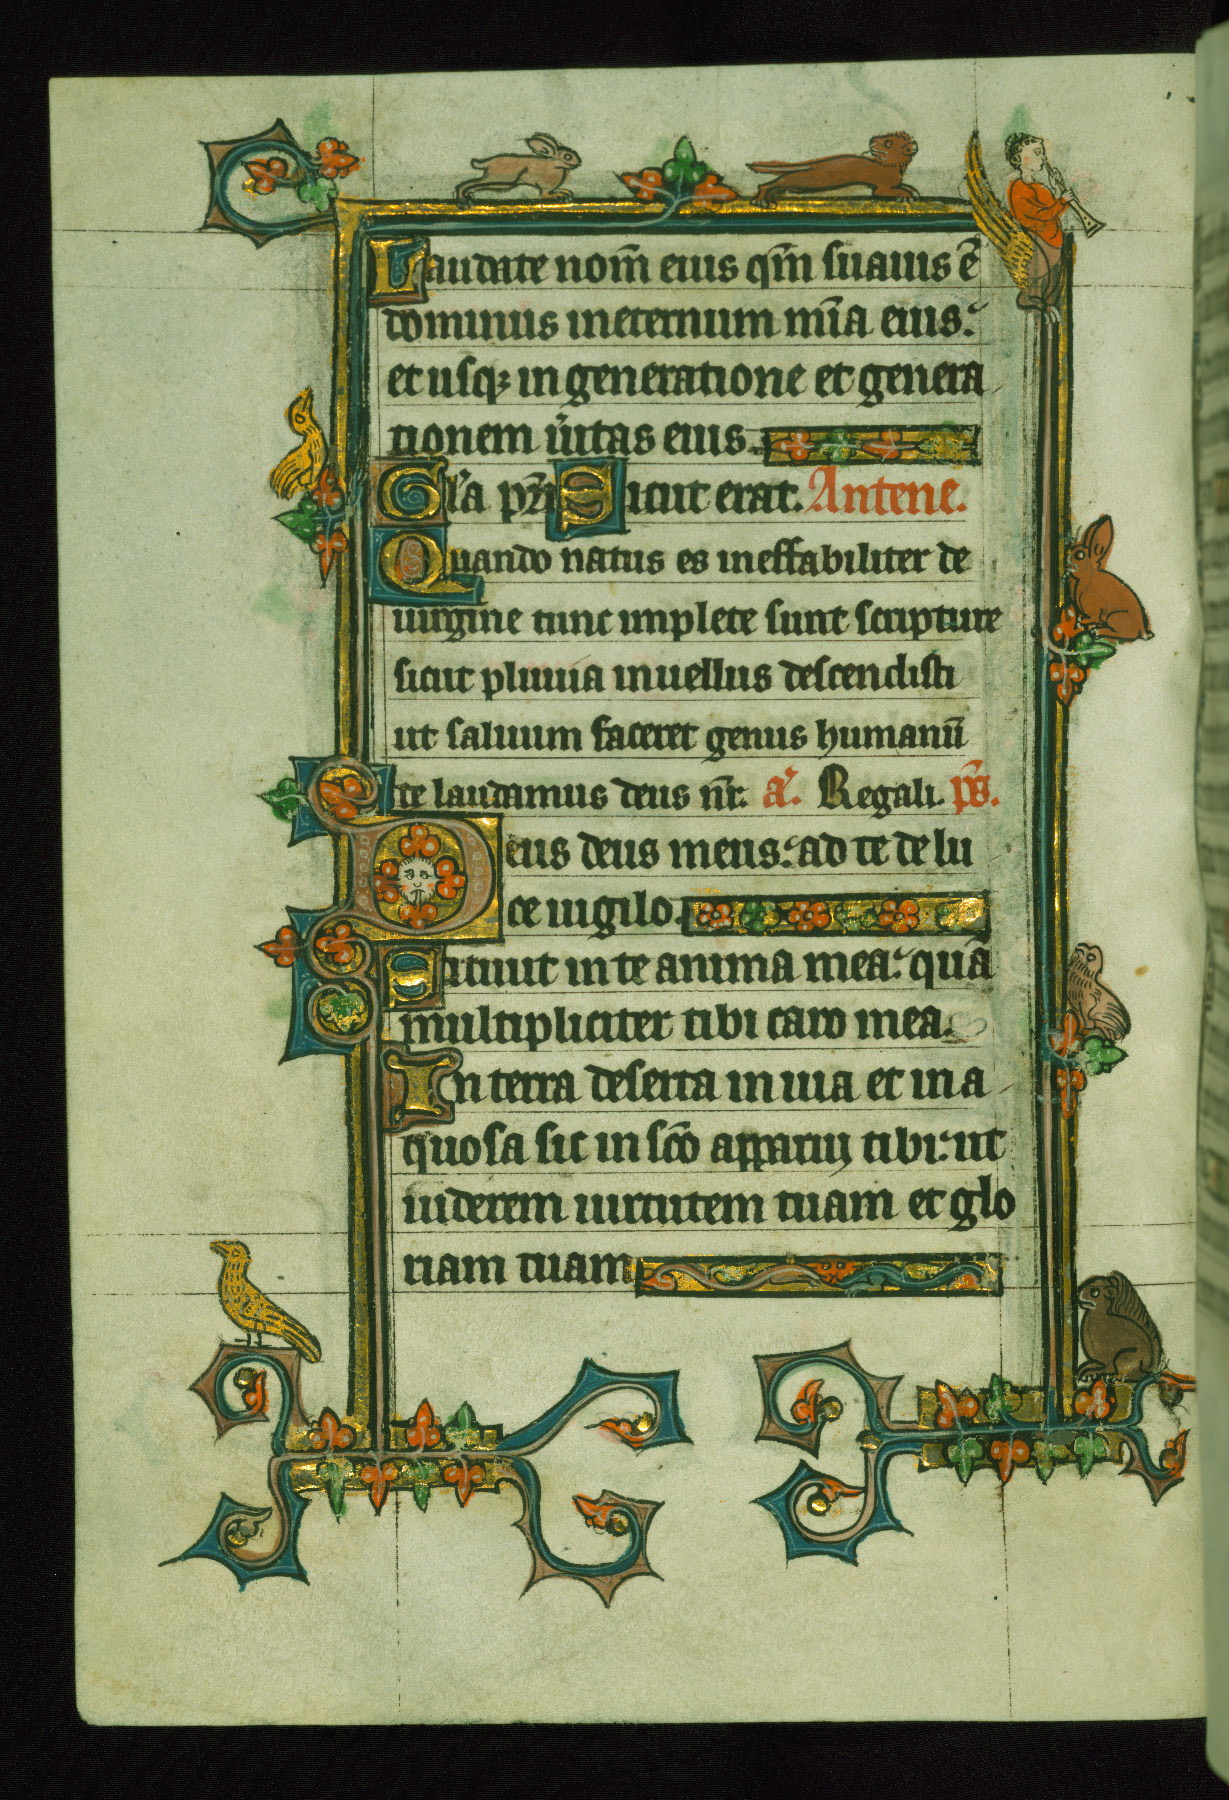 Laudate nom̄ eius qm̄ suauis ē
dominus in eternum mīa eius:
et usq; in generatione et genera
tionem ūitas eius.
Gl'a pr̄i Sicut erat. Antene.
Quando natus es ineffabiliter de
uirgine tunc implete sunt scripture
sicut pluuia in uellus descendisti
ut saluum faceret genus humanū
te laudamus deus nr̄. a'. Regali. ps̄.
Deus deus meus: ad te de lu
ce uigilo.
Sitiuit in te anima mea: quā
multipliciter tibi caro mea.
In terra deserta in uia et in a
quosa sic in sc̄o apparui tibi: ut
uiderem uirtutem tuam et glo
riam tuam